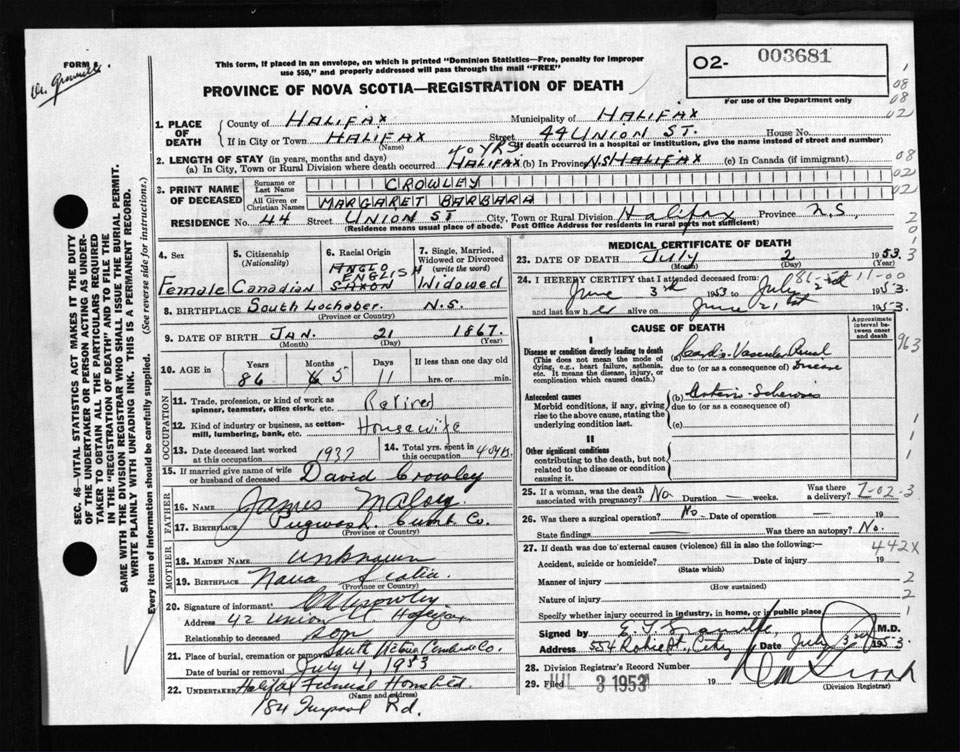 FORM 6
Dr. Granville
This form, if placed in an envelope, on which is printed "Dominion Statistics—Free, penalty for improper
use $50," and properly addressed will pass through the mail "FREE"
PROVINCE OF NOVA SCOTIA—REGISTRATION OF DEATH
02- 003681
For use of the Department only
1. PLACE OF DEATH
County of HALIFAX Municipality of HALIFAX
If in City or Town HALIFAX Street 44 UNION ST. House No.
(Name) (If death occurred in a hospital or institution, give the name instead of street and number)
2. LENGTH OF STAY (in years, months and days) 40 YRS
(a) In City, Town or Rural Division where death occurred HALIFAX (b) In Province N.S. HALIFAX (c) In Canada (if immigrant)
3. PRINT NAME OF DECEASED
Surname or Last Name CROWLEY
All Given or Christian Names MARGARET BARBARA
RESIDENCE No. 44 Street UNION ST City, Town or Rural Division Halifax Province N.S.
(Residence means usual place of abode. Post Office Address for residents in rural parts not sufficient)
4. Sex Female
5. Citizenship (Nationality) Canadian
6. Racial Origin ANGLO ENGLISH SAXON
7. Single, Married, Widowed or Divorced (write the word) Widowed
8. BIRTHPLACE South Lochaber N.S.
(Province or Country)
9. DATE OF BIRTH JAN. 21 1867.
(Month) (Day) (Year)
10. AGE in Years Months Days If less than one day old
86 5 11 hrs. or min.
OCCUPATION
11. Trade, profession, or kind of work as spinner, teamster, office clerk, etc. Retired
12. Kind of industry or business, as cotton-mill, lumbering, bank, etc. Housewife
13. Date deceased last worked at this occupation 1937
14. Total yrs. spent in this occupation 40 yrs.
15. If married give name of wife or husband of deceased David Crowley
FATHER
16. NAME James Maloy.
17. BIRTHPLACE Pugwash. Cumb. Co.
(Province or Country)
MOTHER
18. MAIDEN NAME Unknown
19. BIRTHPLACE Nova Scotia.
(Province or Country)
20. Signature of informant Crowley
Address 42 Union St. Halifax
Relationship to deceased son
21. Place of burial, cremation or removal South
Date of burial or removal July 4, 1953
22. UNDERTAKER Halifax Funeral Home Ltd.
(Name and address)
Rd.
MEDICAL CERTIFICATE OF DEATH
23. DATE OF DEATH July 2 1953
(Month) (Day) (Year)
24. I HEREBY CERTIFY that I attended deceased from
June 3rd 1953 to July 2nd 1953.
and last saw her alive on June 21st 1953.
CAUSE OF DEATH
Approximate interval between onset and death
I
Disease or condition directly leading to death
(This does not mean the mode of dying, e.g., heart failure, asthenia, etc. It means the disease, injury, or complication which caused death.)
(a) Cardio-Vascular Renal disease
due to (or as a consequence of)
Antecedent causes
Morbid conditions, if any, giving rise to the above cause, stating the underlying condition last.
(b)
due to (or as a consequence of)
(c)
II
Other significant conditions
contributing to the death, but not related to the disease or condition causing it.
25. If a woman, was the death associated with pregnancy? No. Duration — weeks. Was there a delivery?
7-02-3
26. Was there a surgical operation? No — Date of operation — 19
State findings — Was there an autopsy? No.
27. If death was due to external causes (violence) fill in also the following:—
442X
Accident, suicide or homicide? Date of injury 19
(State which)
Manner of injury
(How sustained)
Nature of injury
Specify whether injury occurred in industry, in home, or in public place
Signed by E. T. Granville, M.D.
Address 554 Robie St., City Date July 3rd 1953.
28. Division Registrar's Record Number
29. Filed JUL 3 1953 19
(Division Registrar)
SEC. 46—VITAL STATISTICS ACT MAKES IT THE DUTY
OF THE UNDERTAKER OR PERSON ACTING AS UNDER-
TAKER TO OBTAIN ALL THE PARTICULARS REQUIRED
IN THE "REGISTRATION OF DEATH" AND TO FILE THE
SAME WITH THE DIVISION REGISTRAR WHO SHALL ISSUE THE BURIAL PERMIT.
WRITE PLAINLY WITH UNFADING INK. THIS IS A PERMANENT RECORD.
Every item of information should be carefully supplied. (See reverse side for instructions.)